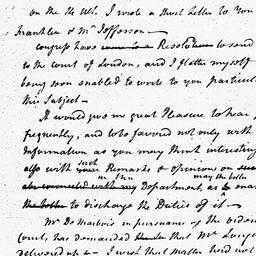 on the 14 ult. I wrote a short letter to you
Franklin & Mr. Jefferson—
congress have Resolved to send
to the court of London, and I flatter myself
being soon enabled to write to you particul
this Subject—
It would give me great Pleasure to hear
frequently, and to be favored not only with
Information as you may think interesting
also with such Remarks & opinions on
in this may the better
Department, as to ena
to discharge the Duties of it—
Mr. De Marbois in pursuance of the orders
Court, has demanded that Mr. Longc
delivered up— I wish that matter had not